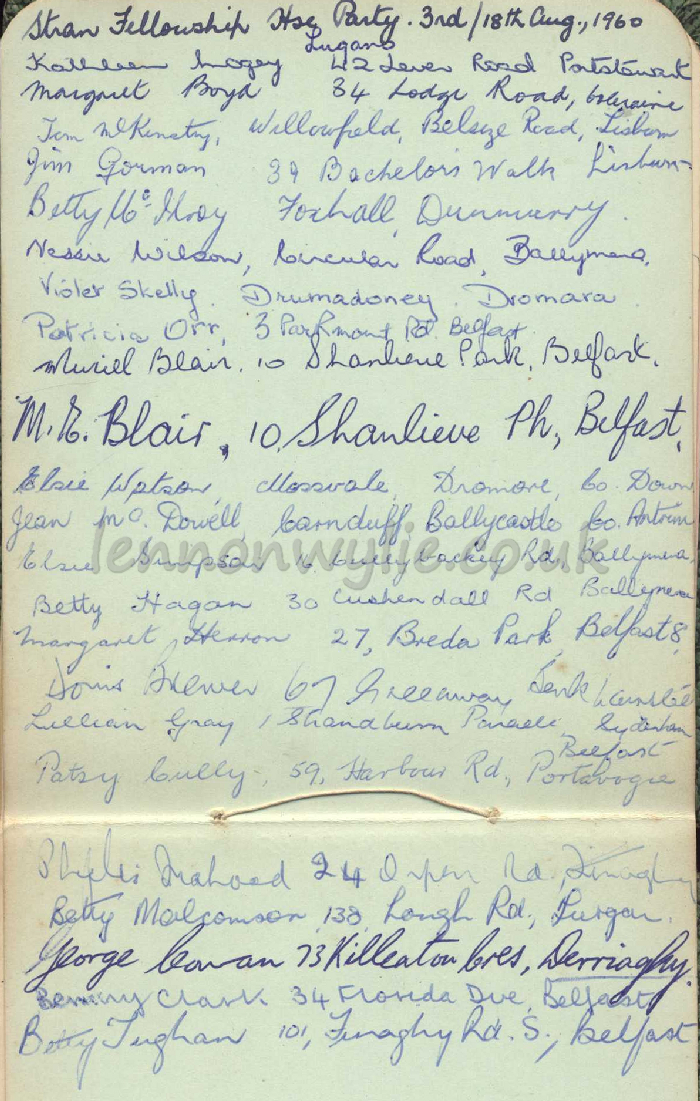 Stran Fellowship Hse Party. 3rd/18th Aug., 1960
Lugano
Kathleen 42 Lever Road Portstewart
Margaret Boyd 34 Lodge Road, Coleraine
Tom McKinstry, Willowfield, Belsize Road, Lisburn
Jim Gorman 39 Bachelors Walk Lisburn
Betty McIlroy Foxhall, Dunmurry.
Nessie Wilson, Circular Road, Ballymena.
Violet Skelly. Drumadoney. Dromara
Patricia Orr, 3 Parkmount Rd. Belfast
Muriel Blair. 10 Shanlieve Park, Belfast.
M.E. Blair, 10, Shanlieve Pk, Belfast,
Elsie Watson, Mossvale, Dromore, Co. Down
Jean McDowell, Carnduff, Ballycastle Co. Antrim
lennonwylie.co.uk
Elsie Simpson 16 Cullybackey Rd, Ballymena
Betty Hagan 30 Cushendall Rd Ballymena
Margaret Herron 27, Breda Park, Belfast 8,
Doris 67
Lillian Gray 1 Shandburn Parade, Sydenham
Belfast
Patsy Cully, 59, Harbour Rd., Portavogie
Phyllis Mahood 24 Orpen Rd., Finaghy
Betty Malcomson 138 Lough Rd., Lurgan.
George Cowan 73 Killeaton Cres, Derriaghy.
Clark 34 Florida Dve, Belfast
Betty Tughan 101, Finaghy Rd. S., Belfast